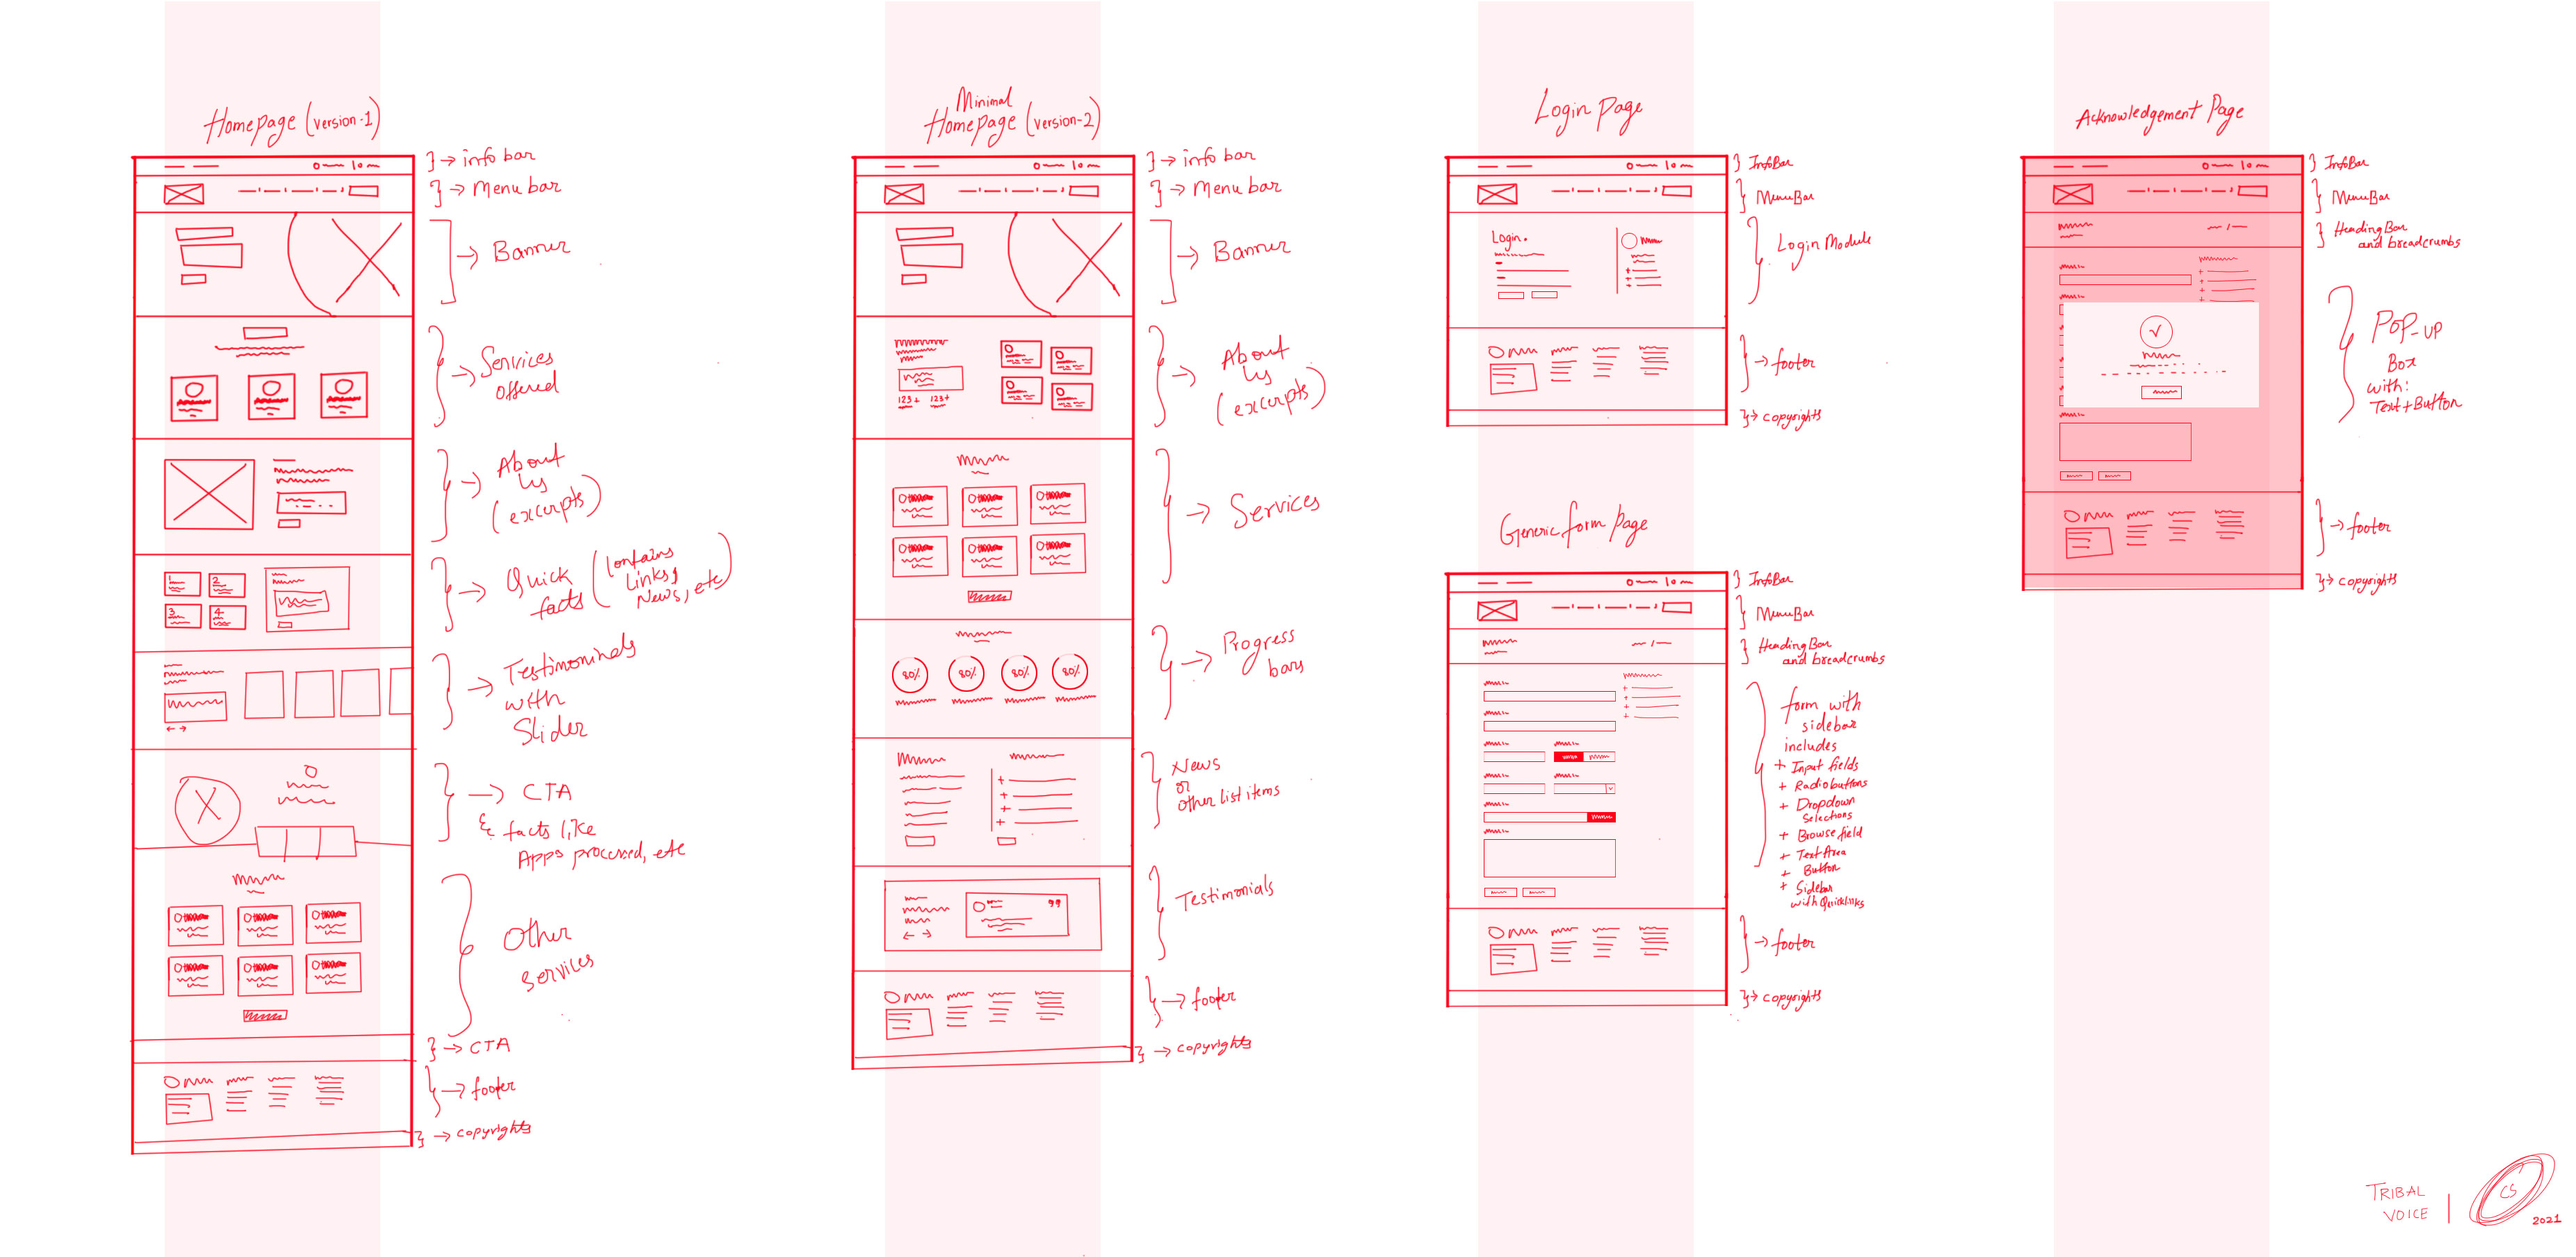 Homepage (version-1)
} → info bar
} → Menu bar
→ Banner
→ Services
offered
→ About
us
(excerpts)
1
2
3
4
→ Quick (contains
facts Links,
News, etc)
→ Testimoninals
with
Slider
→ CTA
& facts like
Apps processed, etc
Other
services
} → CTA
→ footer
} → copyrights
Minimal
Homepage (version-2)
} → info bar
} → Menu bar
→ Banner
123+ 123+
→ About
us
(excerpts)
→ Services
80% 80% 80% 80%
→ Progress
bars
News
or
other list items
Testimonials
→ footer
} → copyrights
Login Page
} InfoBar
} MenuBar
Login.
Login Module
→ footer
} → copyrights
Generic form Page
} InfoBar
} MenuBar
} HeadingBar
and breadcrumbs
form with
sidebar
includes
+ Input fields
+ Radiobuttons
+ Dropdown
Selections
+ Browse field
+ Text Area
+ Button
+ Sidebar
with Quicklinks
→ footer
} → copyrights
Acknowledgement Page
} InfoBar
} MenuBar
} HeadingBar
and breadcrumbs
POP-UP
Box
with:
Text+Button
→ footer
} → copyrights
TRIBAL
VOICE
CS
2021